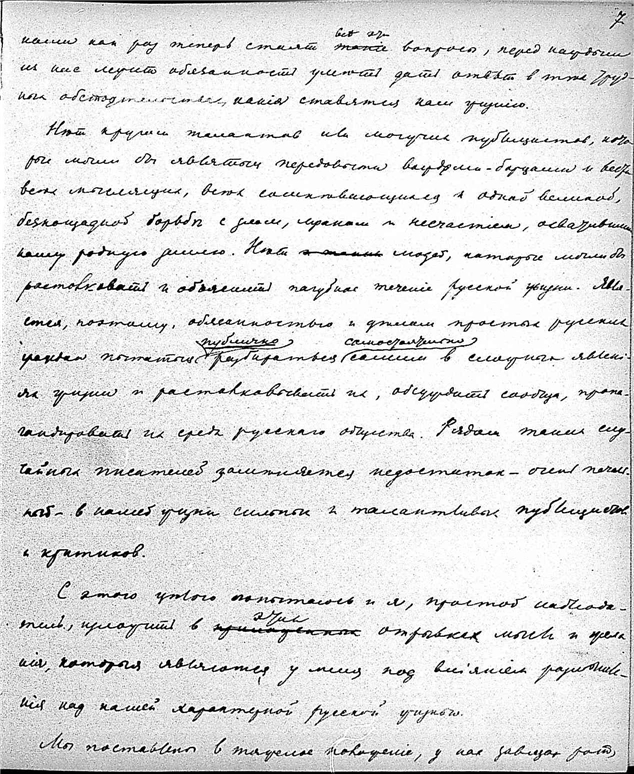 7
нами как раз теперь стоят все эти вопросы, перед каждым
из нас лежит обязанность уметь дать ответ в тех труд-
ных обстоятельствах, какия ставятся нам жизнию.
Нет крупных талантов или могучих публицистов, кото
рые могли бы явиться передовыми вождями-борцами и
всех мыслящих, всех к одной великой,
безпощадной борьбе с злом, мраком и несчастьем,
нашу родную землю. Нет людей, которые могли бы
растолковать и объяснить пагубное течение русской жизни. Явля
ется, поэтому, обязанностью и долгом простых русских
граждан пытаться публично разбираться самостоятельно самим в сложных явлени-
ях жизни и растолковывать их, обсуждать сообща, пропа-
гандировать их среди русскаго общества. Рядом таких слу-
чайных писателей заменяется недостаток – очень печаль
ный – в нашей жизни сильных и талантливых публицистов
и критиков.
С этою целью попытаюсь и я, простой наблюда-
тель, изложить в этих отрывках мысли и
ния, которыя являются у меня под влиянием размышле-
ния над нашей характерной русской жизнью.
Мы поставлены в тяжелое положение, у нас